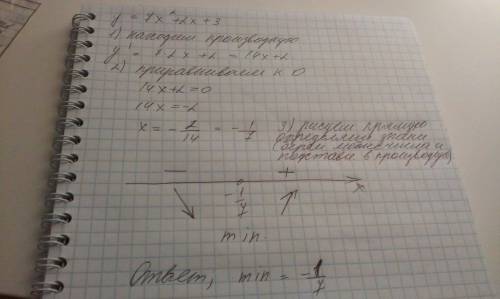 y = 7x² + 2x + 3
1) находим производную
y' = 7·2x + 2 = 14x + 2
2) приравниваем к 0
14x + 2 = 0
14x = -2
x = - 2/14 = - 1/7
3) рисуем прямую
определяем знаки
(берём числа и
подставл в производную)
- +
- 1/7 x
min
Ответ, min = - 1/7